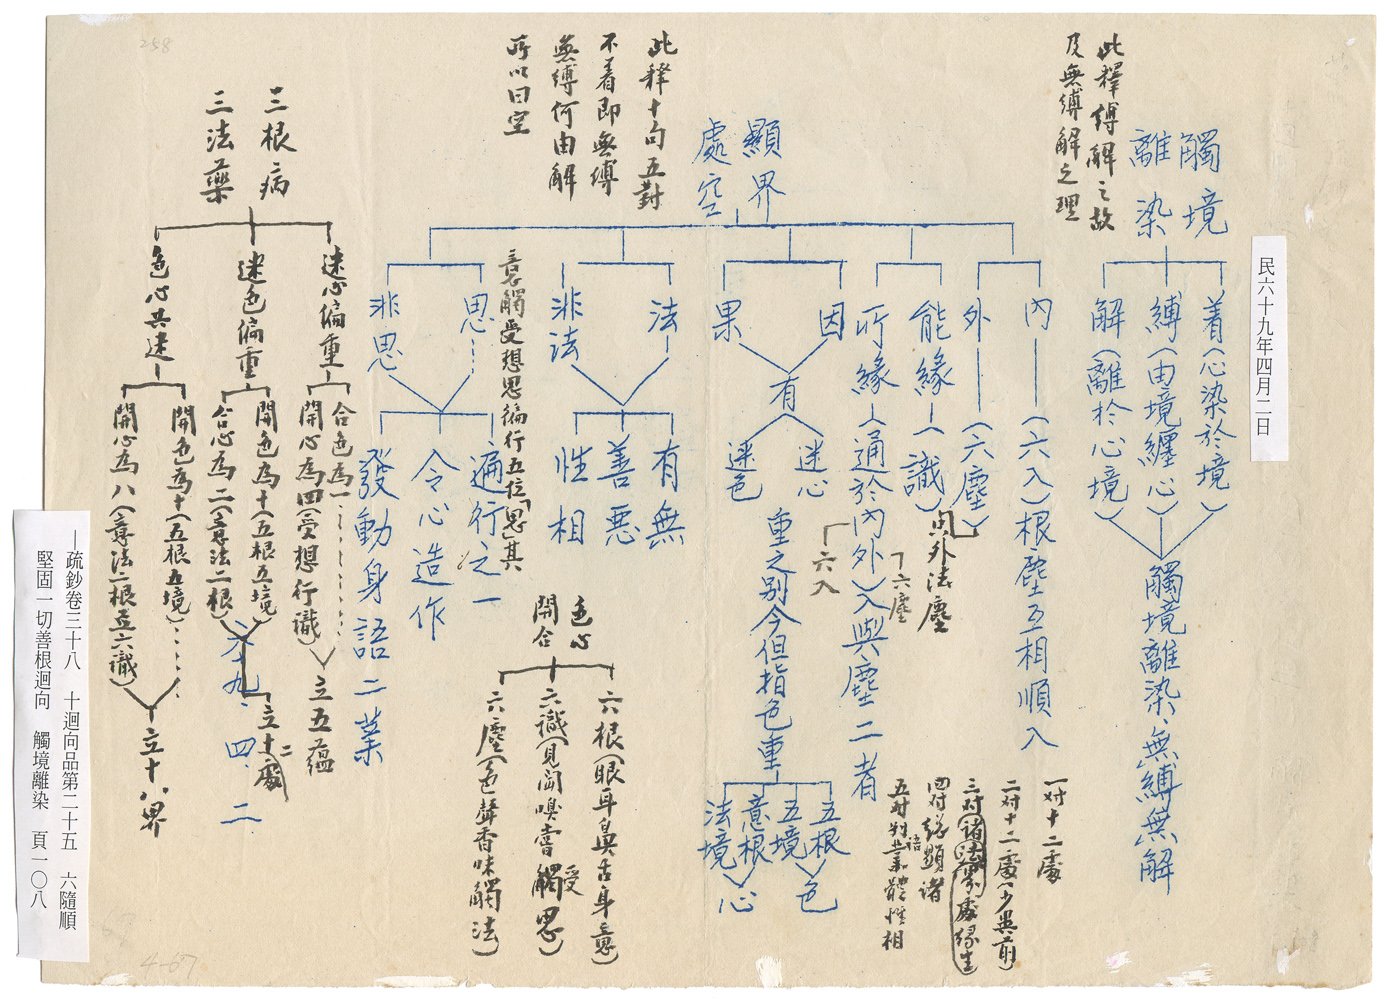 民六十九年四月二日
觸境
離染
此釋縛解之故
及無縛解之理
着(心染於境)
縛(由境纏心)
解(離於心境)
觸境離染、無縛無解
顯界
處空
此釋十句五對
不着即無縛
無縛何由解
所以曰空
內
(六入)根塵互相順入
外
(六塵)
能緣
(識)
內外法塵
所緣
(通於內外)入與塵二者
六塵
六入
因
果
有
迷心
迷色
重之別今但指色重
五根
五境
意根
法境
色
心
法
非法
有無
善惡
性相
思
非思
遍行之一
令心造作
發動身語二業
意觸受想思徧行五位「思」其
一對十二處
二對十二處(少異前)
三對(諸法界處緣生)
四對總顯諸
五對判業體性相
語
色心
開合
六根(眼耳鼻舌身意)
六識(見聞嗅嘗觸思)
受
六塵(色聲香味觸法)
三根病
三法藥
迷心偏重
迷色偏重
色心共迷
合色為一
開心為四(受想行識)
立五蘊
開色為十(五根五境)
合心為二(意法二根)
立十二處
六、九、四、二
開色為十(五根五境)
開心為八(意法二根並六識)
立十八界
258
4-67
—疏鈔卷三十八 十迴向品第二十五 六隨順
堅固一切善根迴向 觸境離染 頁一〇八